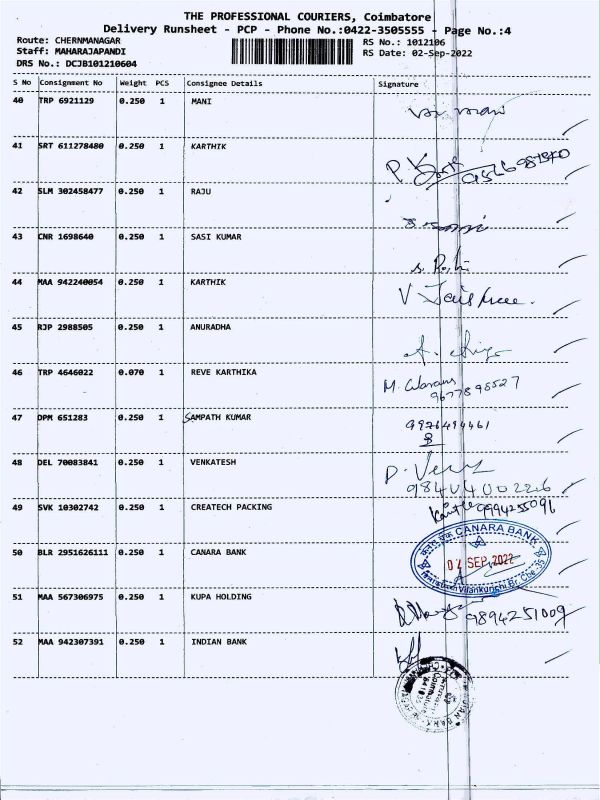 THE PROFESSIONAL COURIERS, Coimbatore
Delivery Runsheet - PCP - Phone No.:0422-3505555 - Page No.:4
Route: CHERNMANAGAR
RS No.: 1012106
Staff: MAHARAJAPANDI
RS Date: 02-Sep-2022
DRS No.: DCJB101210604
S No Consignment No Weight PCS Consignee Details Signature
40 TRP 6921129 0.250 1 MANI
41 SRT 611278480 0.250 1 KARTHIK
42 SLM 302458477 0.250 1 RAJU
43 CNR 1698640 0.250 1 SASI KUMAR
44 MAA 942240054 0.250 1 KARTHIK
45 RJP 2988505 0.250 1 ANURADHA
46 TRP 4646022 0.070 1 REVE KARTHIKA
9677898527
47 DPM 651283 0.250 1 SAMPATH KUMAR
9976494461
48 DEL 70083841 0.250 1 VENKATESH
49 SVK 10302742 0.250 1 CREATECH PACKING
9994255091
50 BLR 2951626111 0.250 1 CANARA BANK
CANARA BANK
04 SEP 2022
51 MAA 567306975 0.250 1 KUPA HOLDING
9894251009
52 MAA 942307391 0.250 1 INDIAN BANK